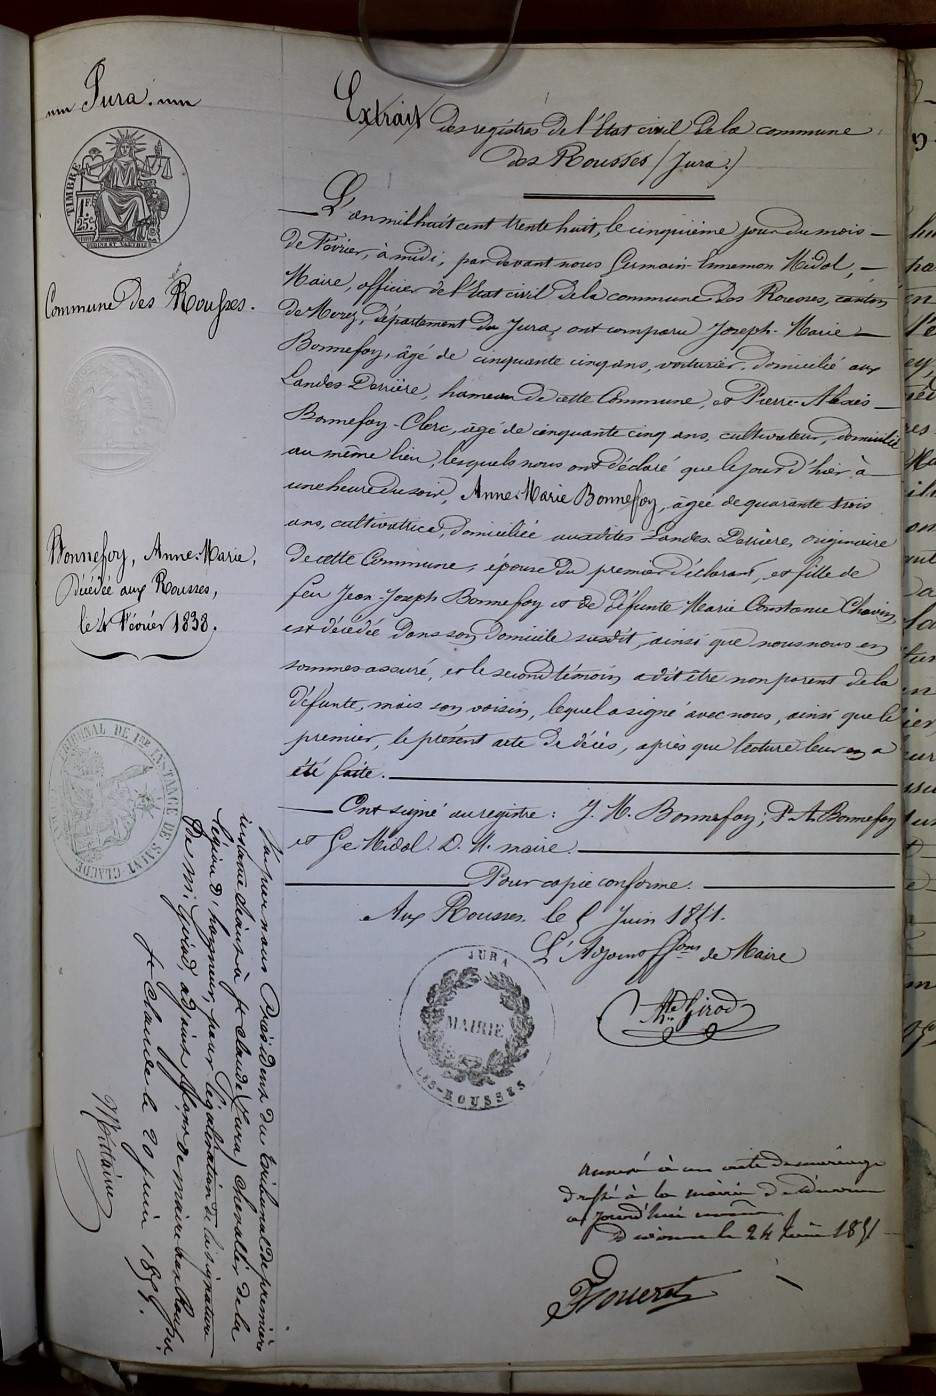 Jura.
TIMBRE
1F.
25c
Commune des Rousses.
Bonnefoy, Anne-Marie,
Décédée aux Rousses,
le 4 Février 1838.
TRIBUNAL DE 1re INSTANCE DE SAINT CLAUDE
Extrait des registres de l'Etat civil de la commune
des Rousses (Jura.)
L'an mil huit cent trente huit, le cinquième jour du mois
de Février, à midi, par devant nous Germain-Ennemon Midol,
Maire, officier de l'Etat civil de la commune des Rousses, canton
de Morez, département du Jura, ont comparu Joseph-Marie
Bonnefoy, âgé de cinquante cinq ans, voiturier, domicilié aux
Landes Derrière, hameau de cette Commune, et Pierre-Alexis
Bonnefoy-Clerc, âgé de cinquante cinq ans, cultivateur, domicilié
au même lieu, lesquels nous ont déclaré que le jour d'hier à
une heure du soir, Anne-Marie Bonnefoy, âgée de quarante trois
ans, cultivatrice, domiciliée auxdites Landes Derrière, originaire
de cette Commune, épouse du premier déclarant, et fille de
feu Jean-Joseph Bonnefoy et de défunte Marie Constance Chavin
est décédée dans son domicile susdit, ainsi que nous nous en
sommes assuré, et le second témoin a dit être non parent de la
défunte, mais son voisin, lequel a signé avec nous, ainsi que le
premier, le présent acte de décès, après que lecture leur en a
été faite.
Ont signé au registre: J. M. Bonnefoy; P. A. Bonnefoy
et G e Midol D. M. maire.
Pour copie conforme.
Aux Rousses le 5 Juin 1851.
L'Adjoint ffons de Maire
Girod
JURA
MAIRIE
LES-ROUSSES
Vu par nous Président du tribunal de première
instance séant à St Claude (Jura) chevalier de la
légion d'honneur, pour légalisation de la signature
de Mr Girod, adjoint ffons de maire aux Rousses.
St Claude le 20 juin 1851.
annexé à un acte de mariage
dressé à la mairie de Divonne
aujourd'hui
Divonne le 24 Juin 1851